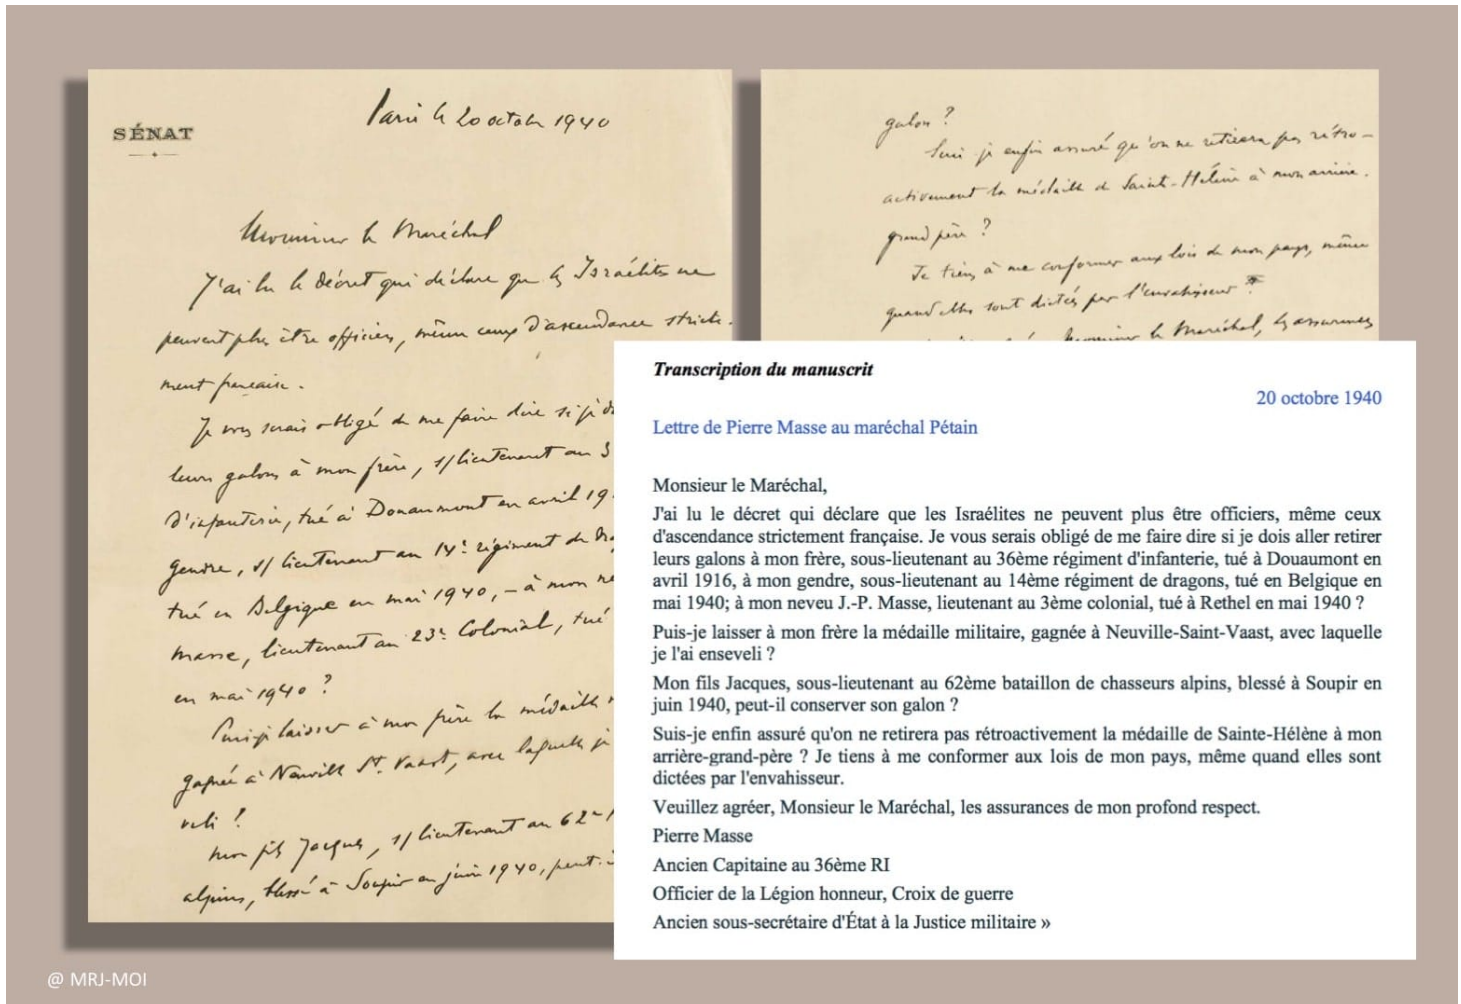 SÉNAT
Paris le 20 octobre 1940
Monsieur le Maréchal
J'ai lu le décret qui déclare que les Israélites ne
peuvent plus être officiers, même ceux d'ascendance stricte-
ment française.
Je vous serais obligé de me faire dire si je d
leurs galons à mon frère, s/lieutenant au 3
d'infanterie, tué à Douaumont en avril 19
gendre, s/lieutenant au 14e régiment de dra
tué en Belgique en mai 1940, - à mon ne
Masse, lieutenant au 23e Colonial, tué
en mai 1940 ?
Puis-je laisser à mon frère la médaille m
gagnée à Neuville St. Vaast, avec laquelle je
veli ?
Mon fils Jacques, s/lieutenant au 62e
alpins, blessé à Soupir en juin 1940, peut-
galon ?
Suis-je enfin assuré qu'on ne retirera pas rétro-
activement la médaille de Sainte-Hélène à mon arrière-
grand père ?
Je tiens à me conformer aux lois de mon pays, même
quand elles sont dictées par l'envahisseur
Monsieur le Maréchal, les assurances
Transcription du manuscrit
20 octobre 1940
Lettre de Pierre Masse au maréchal Pétain
Monsieur le Maréchal,
J'ai lu le décret qui déclare que les Israélites ne peuvent plus être officiers, même ceux
d'ascendance strictement française. Je vous serais obligé de me faire dire si je dois aller retirer
leurs galons à mon frère, sous-lieutenant au 36ème régiment d'infanterie, tué à Douaumont en
avril 1916, à mon gendre, sous-lieutenant au 14ème régiment de dragons, tué en Belgique en
mai 1940; à mon neveu J.-P. Masse, lieutenant au 3ème colonial, tué à Rethel en mai 1940 ?
Puis-je laisser à mon frère la médaille militaire, gagnée à Neuville-Saint-Vaast, avec laquelle
je l'ai enseveli ?
Mon fils Jacques, sous-lieutenant au 62ème bataillon de chasseurs alpins, blessé à Soupir en
juin 1940, peut-il conserver son galon ?
Suis-je enfin assuré qu'on ne retirera pas rétroactivement la médaille de Sainte-Hélène à mon
arrière-grand-père ? Je tiens à me conformer aux lois de mon pays, même quand elles sont
dictées par l'envahisseur.
Veuillez agréer, Monsieur le Maréchal, les assurances de mon profond respect.
Pierre Masse
Ancien Capitaine au 36ème RI
Officier de la Légion honneur, Croix de guerre
Ancien sous-secrétaire d'État à la Justice militaire »
@ MRJ-MOI